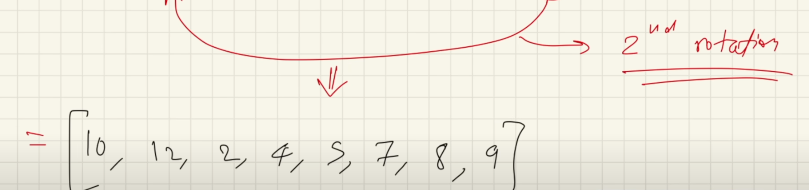 2nd rotation
= [10, 12, 2, 4, 5, 7, 8, 9]